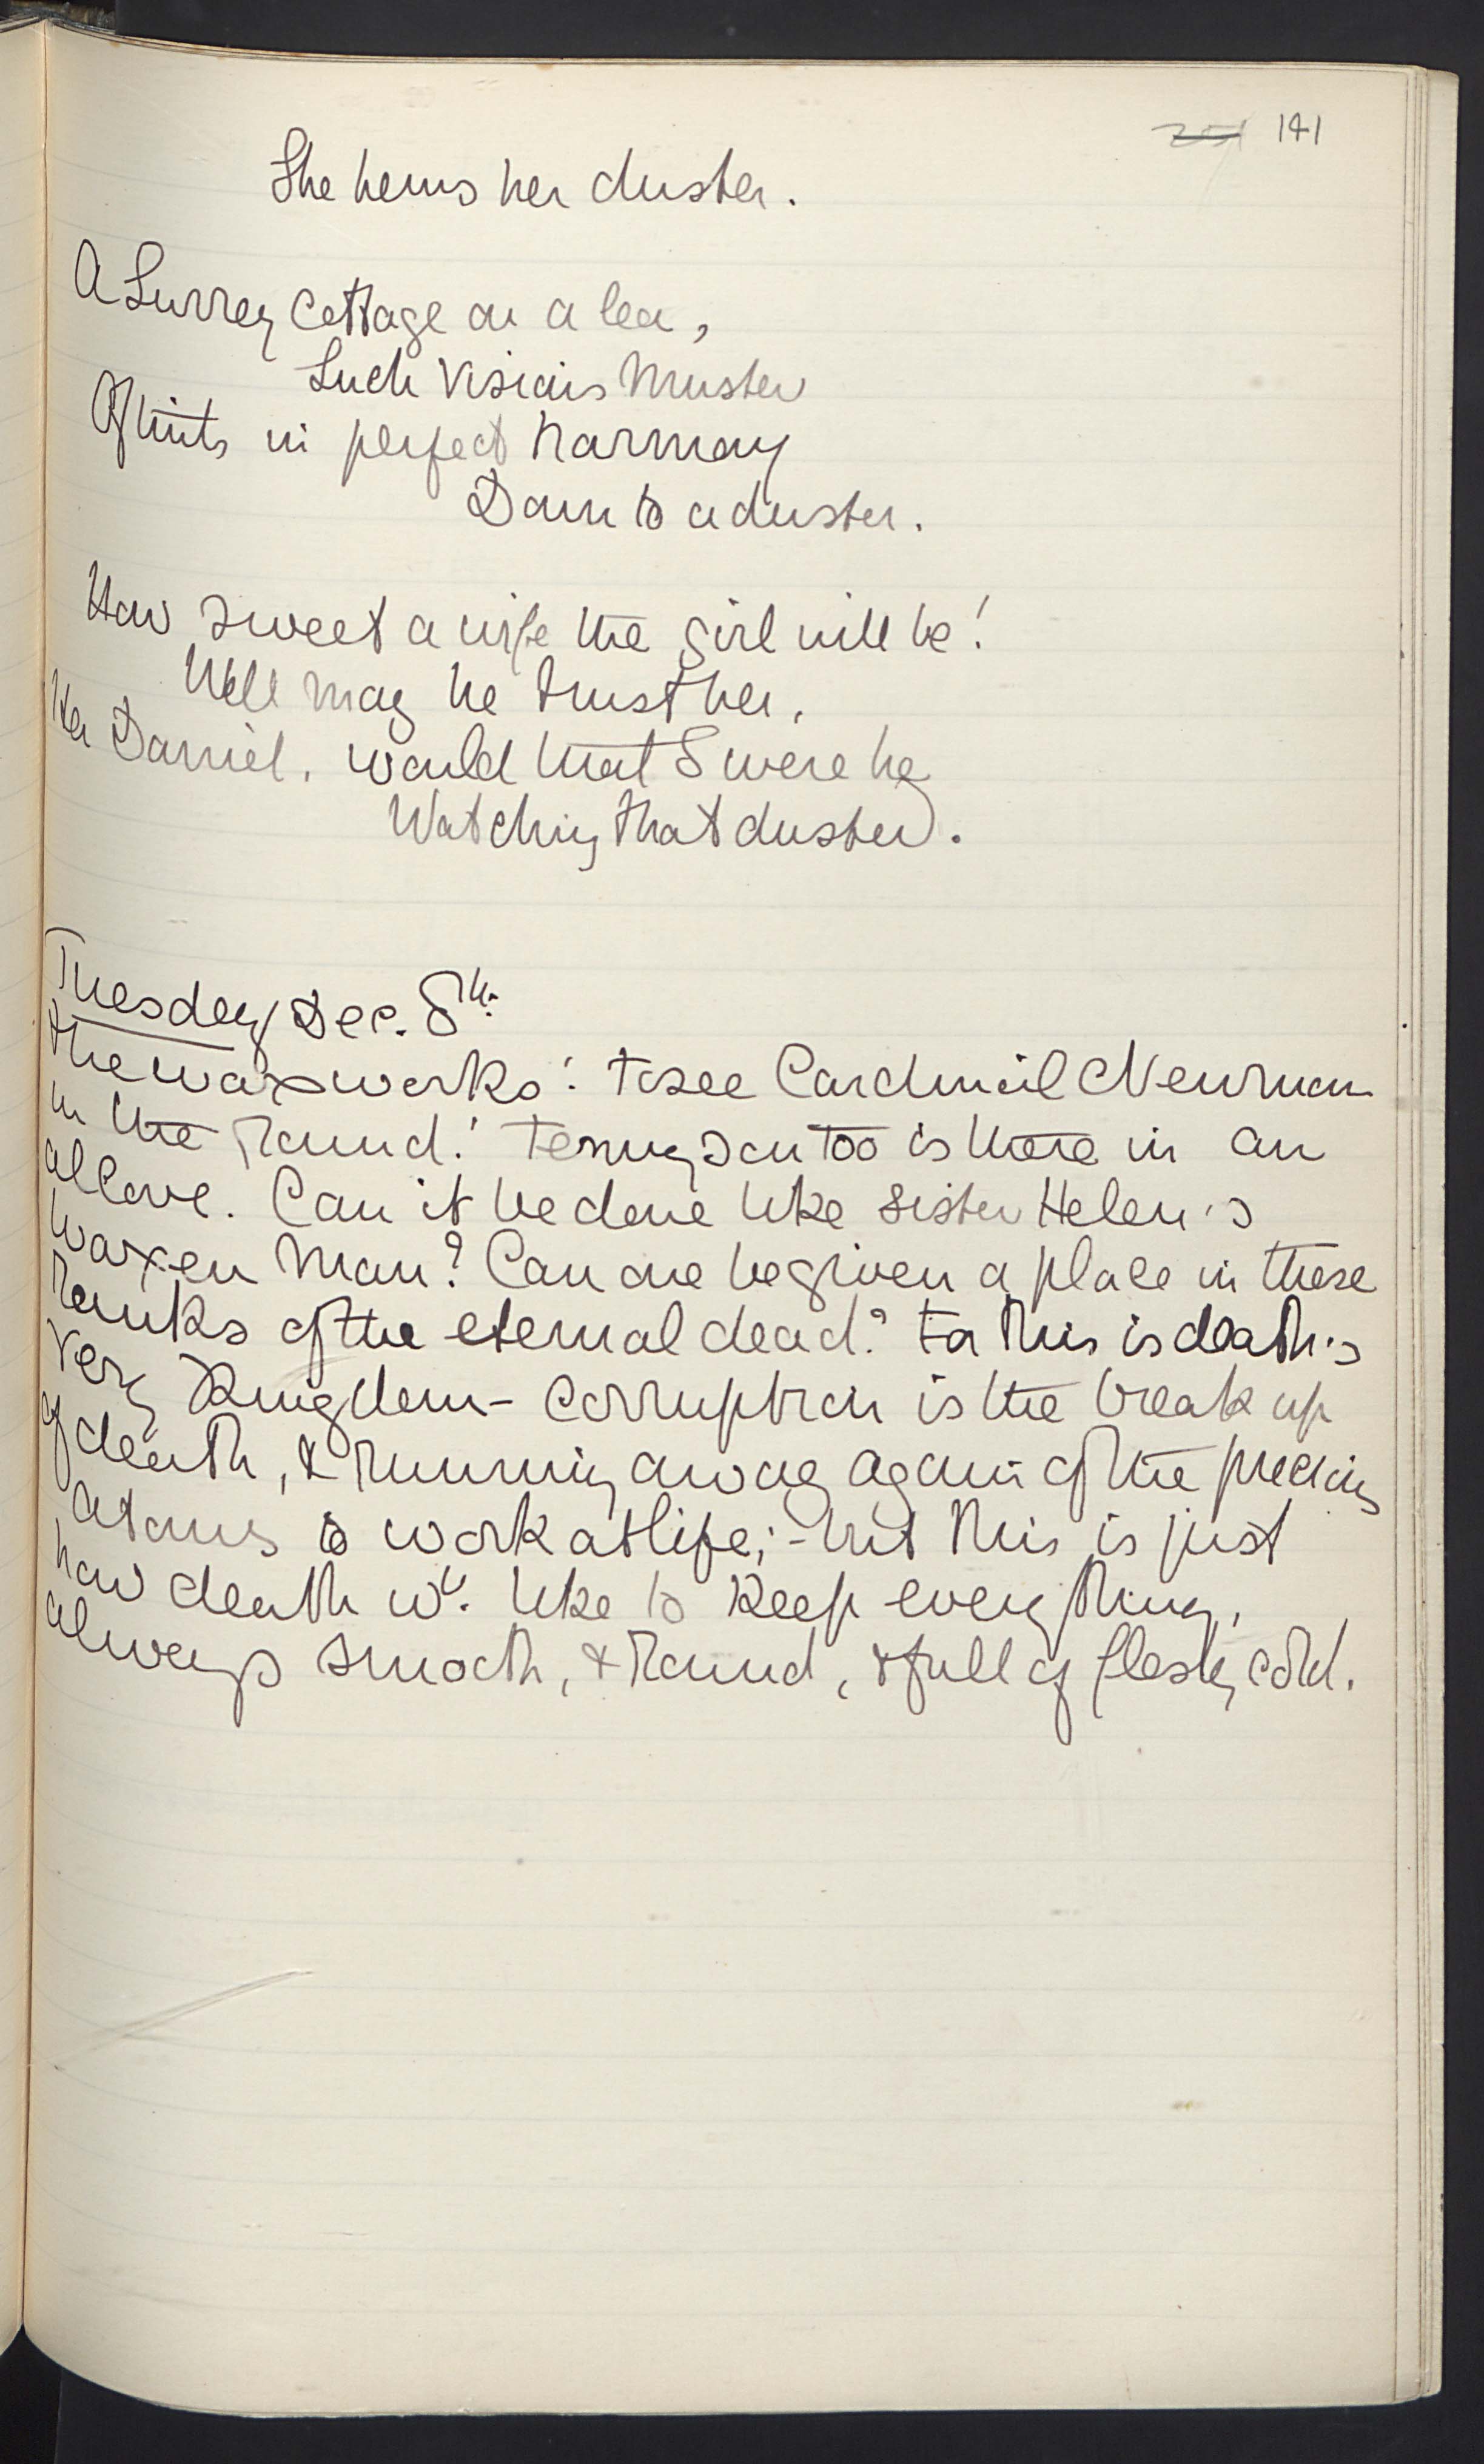 141
She hems her duster.
A Surrey cottage on a lea,
Such visions muster
Of tints in perfect harmony
Down to a duster.
How sweet a wife the girl will be!
Well may he trust her,
Her Daniel. would that I were he
Watching that duster.
Tuesday Dec. 8th.
The waxworks! to see Cardinal Newman
in the round! Tennyson too is there in an
alcove. Can it be done like Sister Helen's
waxen man? Can one be given a place in these
ranks of the eternal dead? For this is death's
very Kingdom - Corruption is the break up
of death, & running away again of the precious
atoms to work at life; - but this is just
how death wd. like to keep everything,
always smooth, & round, & full of fleshy cold.